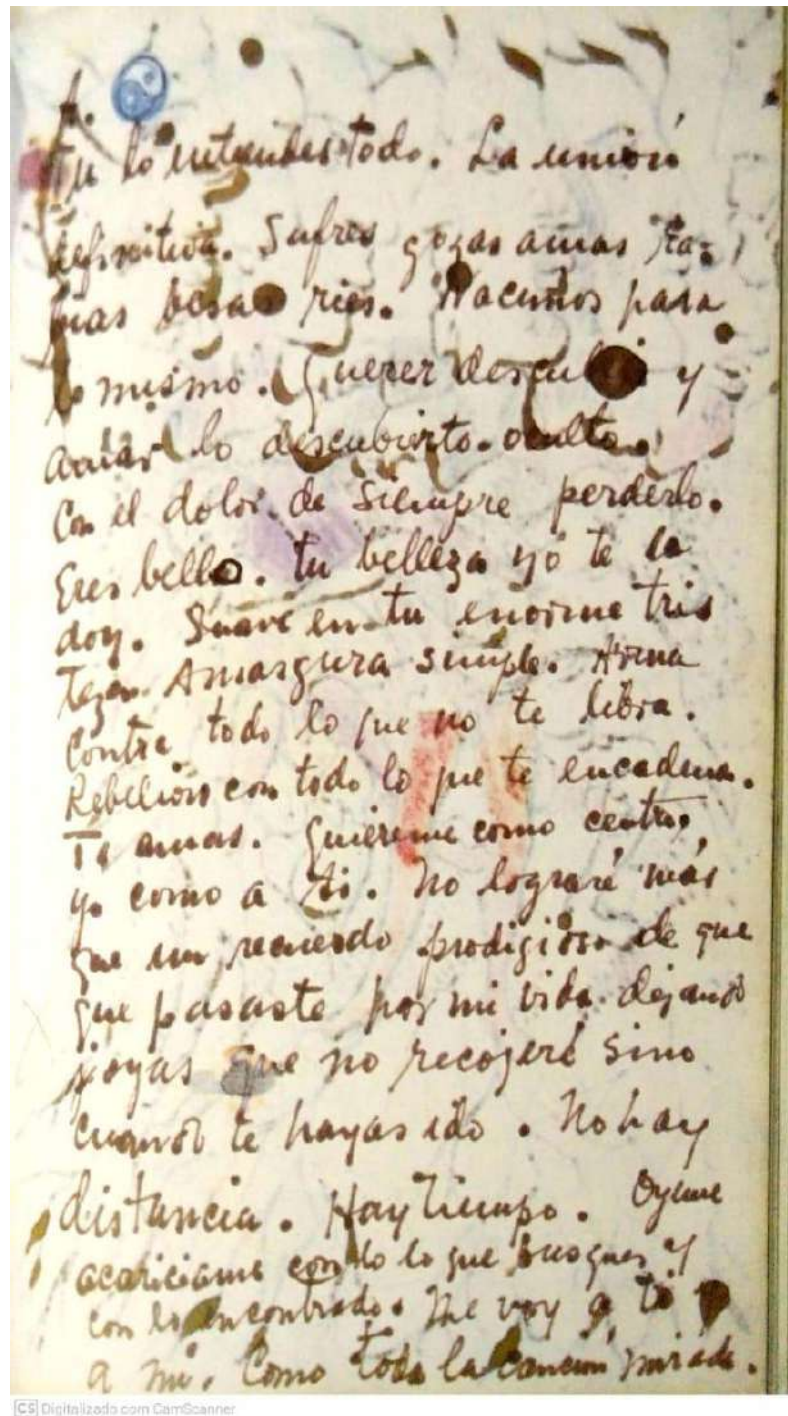 Tu lo entiendes todo. La unión
definitiva. Sufres gozas amas ra-
bias besas ries. Nacimos para
lo mismo. Querer descubrir y
amar lo descubierto. oculto.
Con el dolor de siempre perderlo.
Eres bello. tu belleza yo te la
doy. Suave en tu enorme tris
teza. Amargura simple. Arma
contra todo lo que no te libra.
Rebelion con todo lo que te encadena.
Te amas. Quiereme como centro.
yo como a ti. No lograré más
que un recuerdo prodigioso de que
que pasaste por mi vida dejando
joyas que no recojeré sino
cuando te hayas ido. No hay
distancia. Hay tiempo. Oyeme
acariciame con lo que busques y
con lo encontrado. Me voy a ti y
a mi. Como toda la canción mirada.
CS Digitalizado com CamScanner